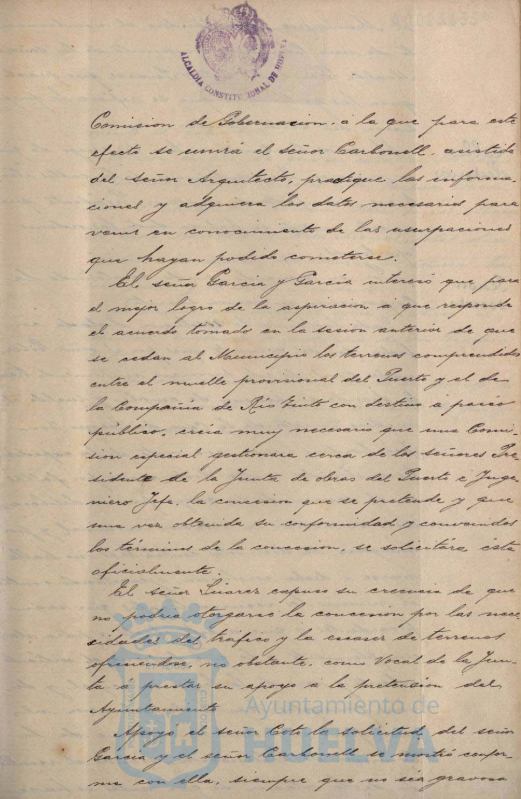 ALCALDIA CONSTITUCIONAL DE HUELVA
Comision de Gobernacion, a la que para este
efecto se unirá el señor Carbonell, asistida
del señor Arquitecto, practique las informa-
ciones y adquiera los datos necesarios para
venir en conocimiento de las usurpaciones
que hayan podido cometerse.
El señor Garcia y García interesó que para
el mejor logro de la aspiracion á que responde
el acuerdo tomado en la sesion anterior de que
se cedan al Municipio los terrenos comprendidos
entre el muelle provisional del Puerto y el de
la Compañia de Rio Tinto con destino á paseo
público, creia muy necesario que una Comi-
sion especial gestionara cerca de los señores Pre-
sidente de la Junta de obras del Puerto é Inge-
niero Jefe, la concesion que se pretende y que
una vez obtenida su conformidad y convenidos
los términos de la concesion, se solicitára ésta
oficialmente.
El señor Suarez expuso su creencia de que
no podria otorgarse la concesion por las nece-
sidades del tráfico y la escasez de terrenos
ofreciendose, no obstante, como Vocal de la Jun-
ta á prestar su apoyo a la pretension del
Ayuntamiento
Apoyó el señor Coto la solicitud del señor
Garcia y el señor Carbonell se mostró confor-
me con ella, siempre que no sea gravosa
Ayuntamiento de
HUELVA